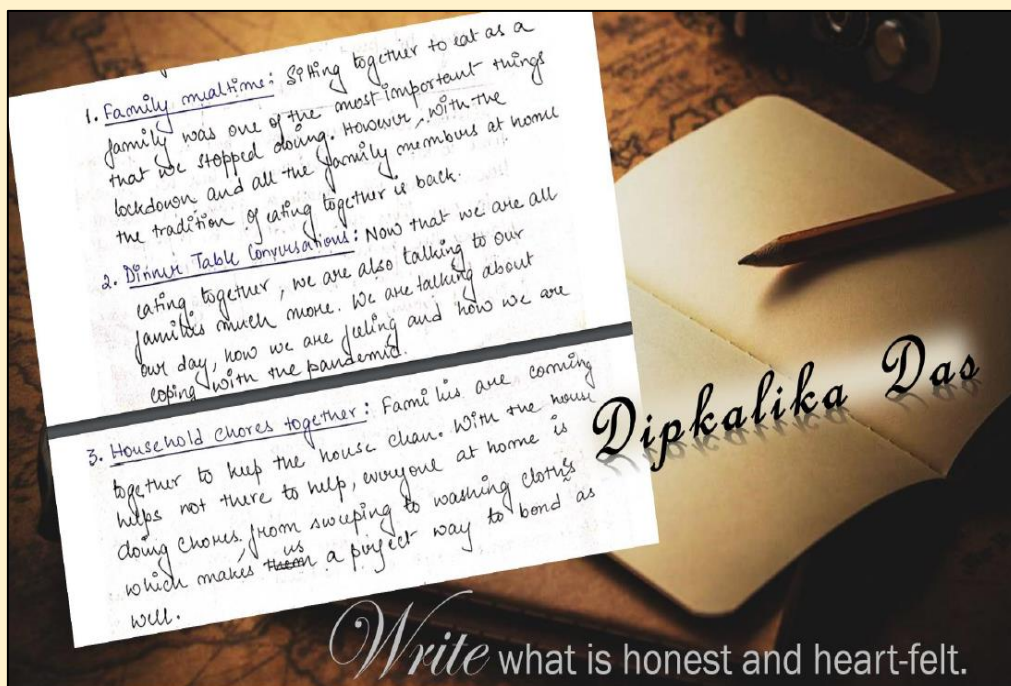 1. Family mealtime: Sitting together to eat as a
family was one of the most important things
that we stopped doing. However, with the
lockdown and all the family members at home
the tradition of eating together is back.
2. Dinner Table Conversations: Now that we are all
eating together, we are also talking to our
families much more. We are talking about
our day, how we are feeling and how we are
coping with the pandemic.
3. Household chores together: Families are coming
together to keep the house clean. With the house
helps not there to help, everyone at home is
doing chores from sweeping to washing clothes
which makes us a perfect way to bond as
well.
Dipkalika Das
Write what is honest and heart-felt.